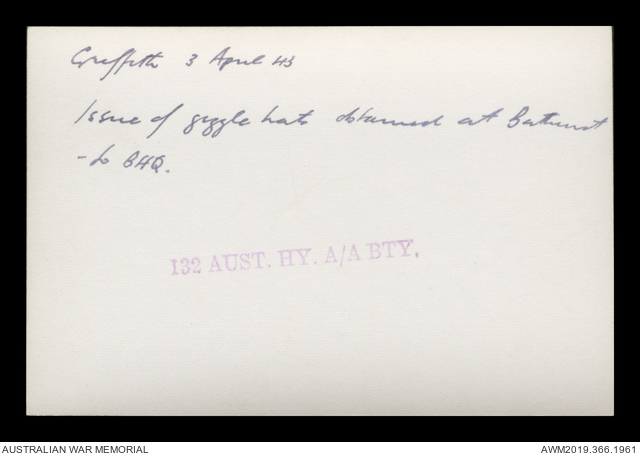 Griffith 3 April 43
Issue of giggle hats obtained at Bathurst
- to BHQ.
132 AUST. HY. A/A BTY.
AUSTRALIAN WAR MEMORIAL
AWM2019.366.1961